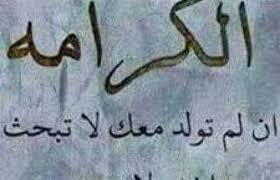 الكرامه
ان لم تولد معك لا تبحث